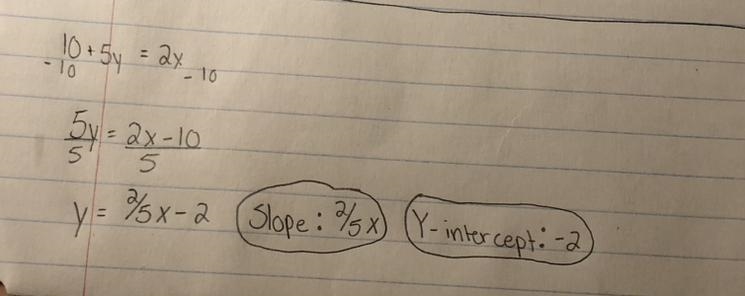 10 + 5y = 2x
-10 -10
5y = 2x-10
5 5
y = 2/5x - 2 Slope: 2/5x Y-intercept: -2